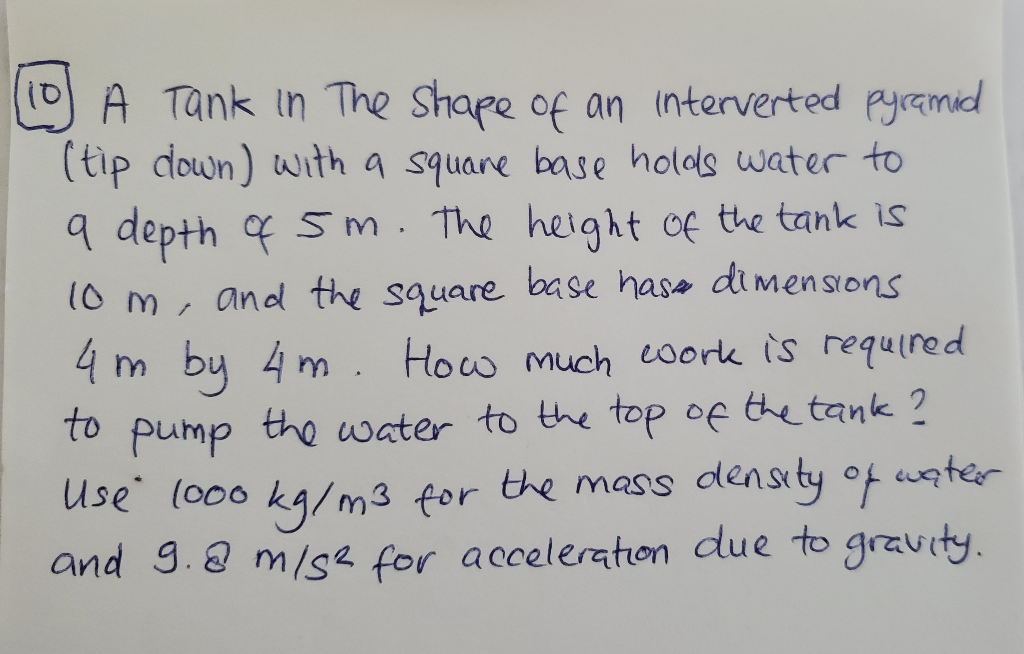 10 A Tank in The Shape of an interverted pyramid
(tip down) with a square base holds water to
a depth of 5 m. The height of the tank is
10 m, and the square base has dimensions
4 m by 4 m. How much work is required
to pump the water to the top of the tank?
Use 1000 kg/m3 for the mass density of water
and 9.8 m/s2 for acceleration due to gravity.